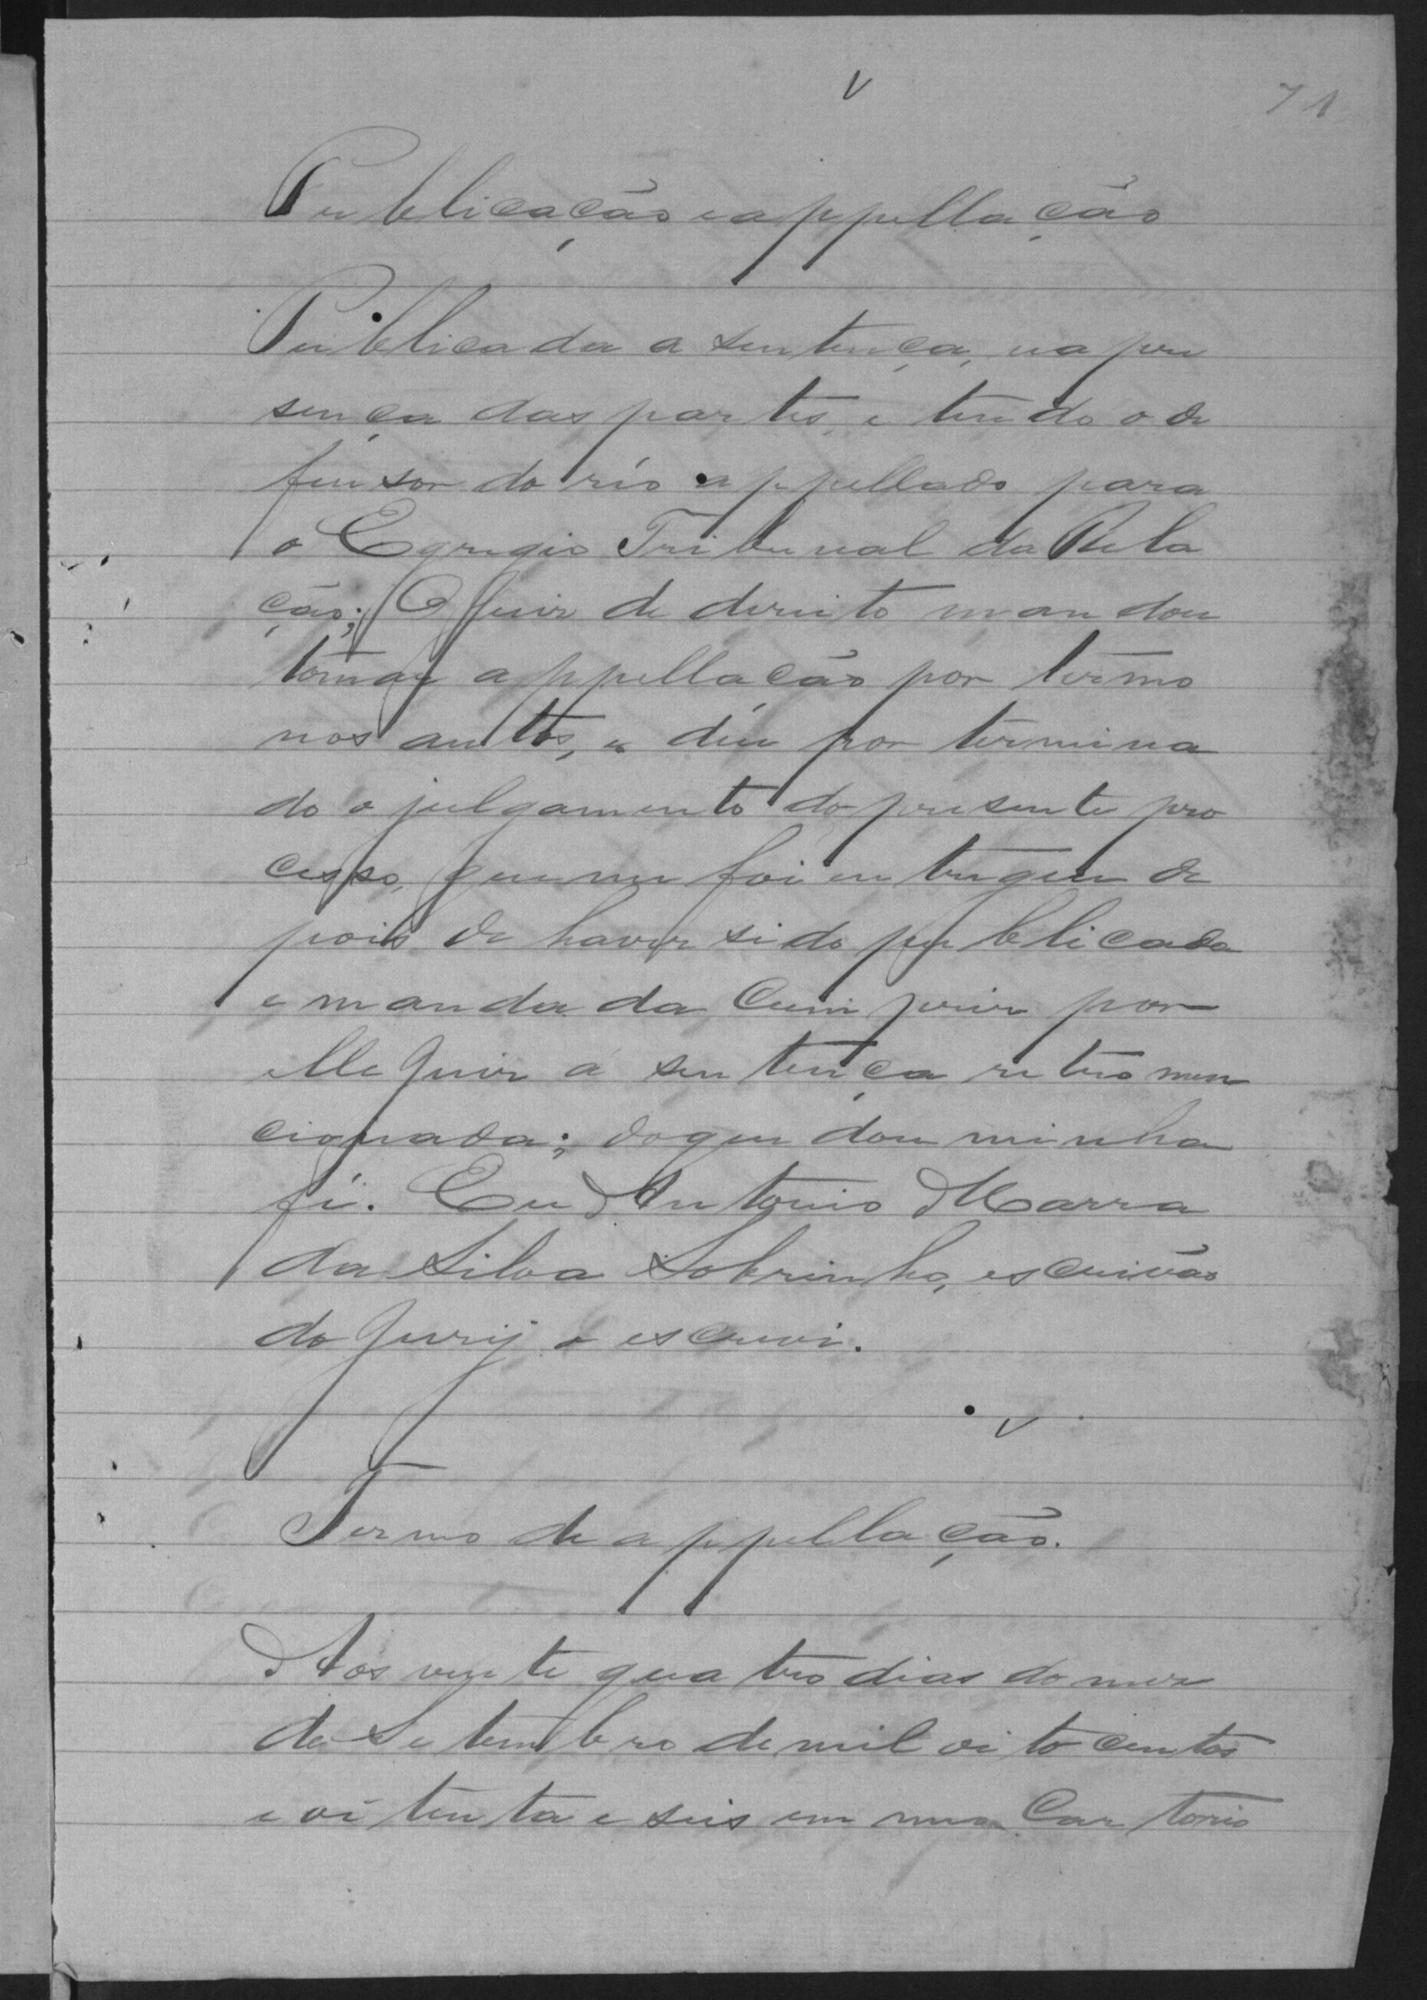 71
Publicação e appellação
Publicada a sentença, na pre
sença das partes, e tendo o de
fensor do réo appellado para
o Egregio Tribunal da Rela
ção; O Juiz de direito mandou
tomar appellação por termo
nos autos, e deu por termina
do o julgamento do presente pro
cesso, que me foi entregue de
pois de haver sido publicada
e mandada cumprir por
elle Juiz a sentença retro men
cionada; do que dou minha
fé. Eu Antonio Marra
da Silva Sobrinho, escrivão
do Jury o escrevi.
Termo de appellação.
Aos vinte quatro dias do mez
de Setembro de mil oito centos
e oitenta e seis em meo Cartorio